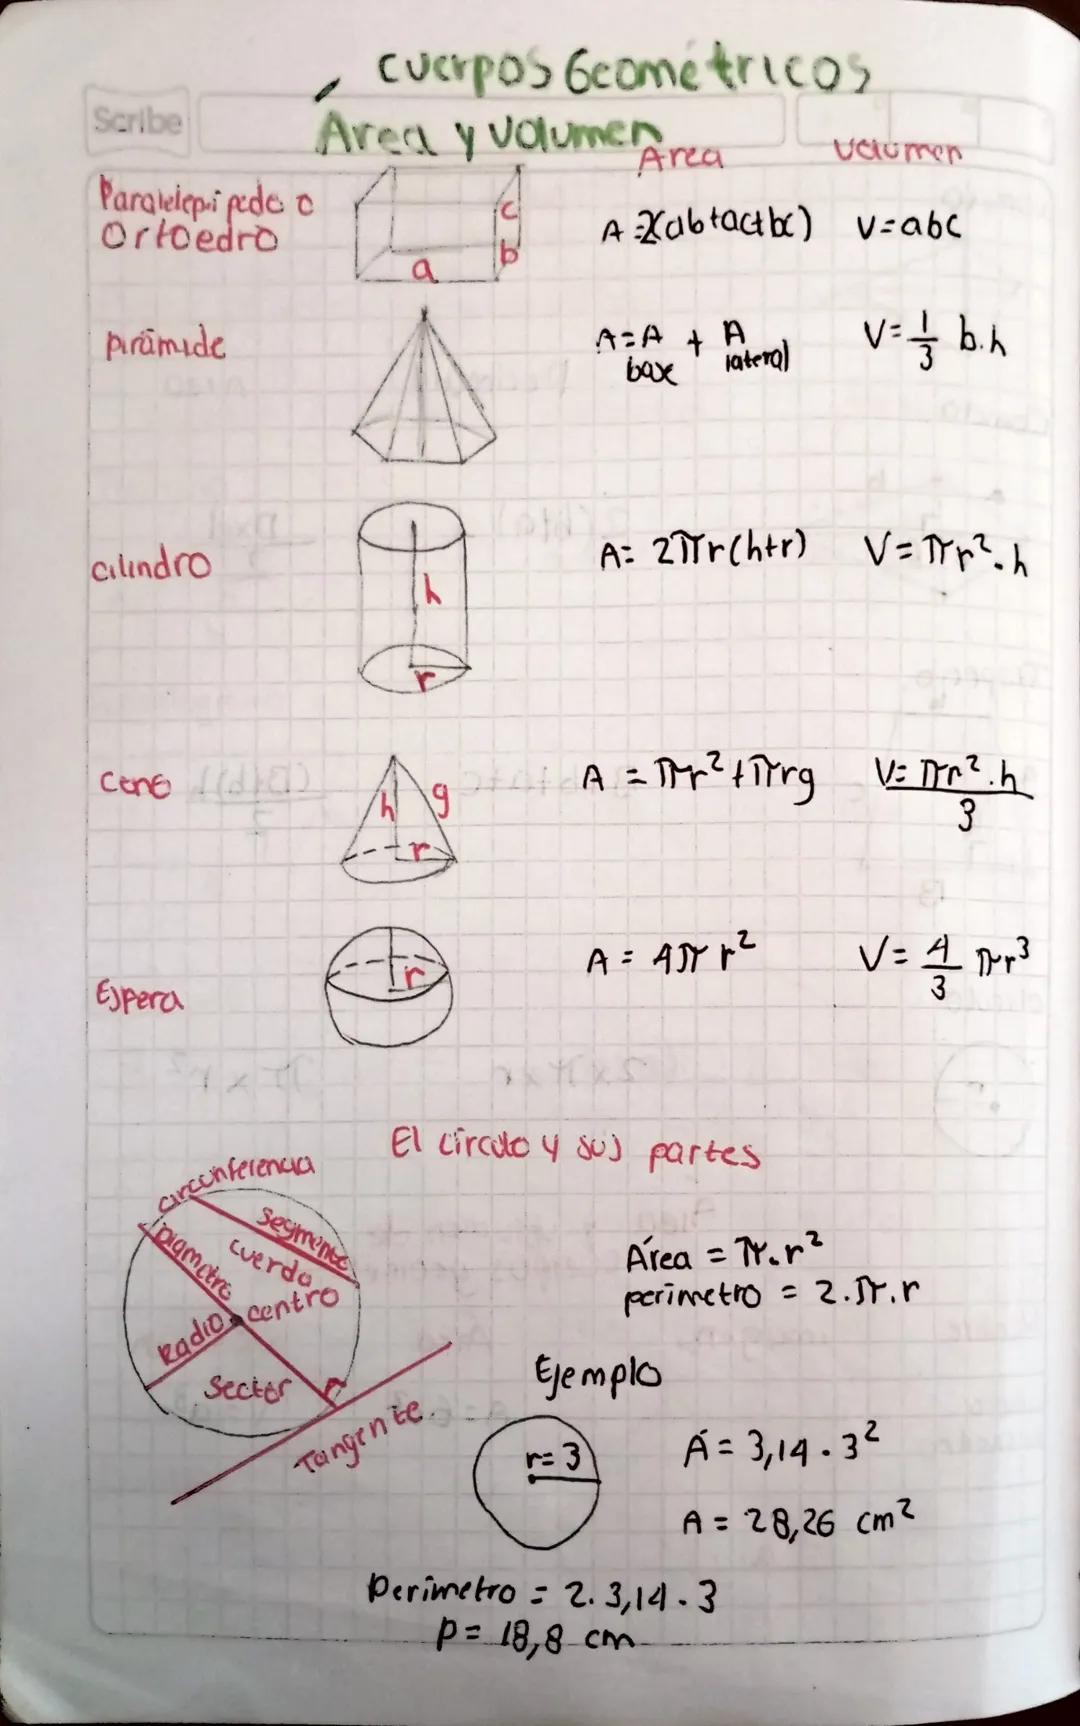 Scribe
Cuerpos Geométricos
Área y Volumen
Area Volumen
Paralelepipedo o
Ortoedro
c
b
a
A=2(ab+ac+bc) V=abc
pirámide
A=A + A
base lateral
V=1/3 b.h
cilindro
h
r
A= 2πr(h+r) V=πr².h
Cono
h g
r
A = πr²+πrg V=πr².h
3
Espera
r
A = 4πr² V=4/3 πr³
El círculo y sus partes
circunferencia
Segmento
Diametro
cuerda
centro
Radio
Sector
Tangente
Área = π.r²
perimetro = 2.π.r
Ejemplo
r=3
A = 3,14 . 3²
A = 28,26 cm²
Perímetro = 2. 3,14 . 3
P= 18,8 cm